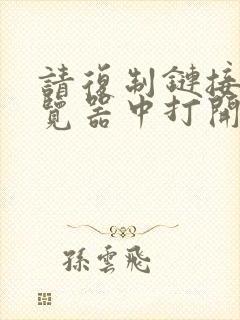 請復制鏈接
覽器中打開
孫雲飛